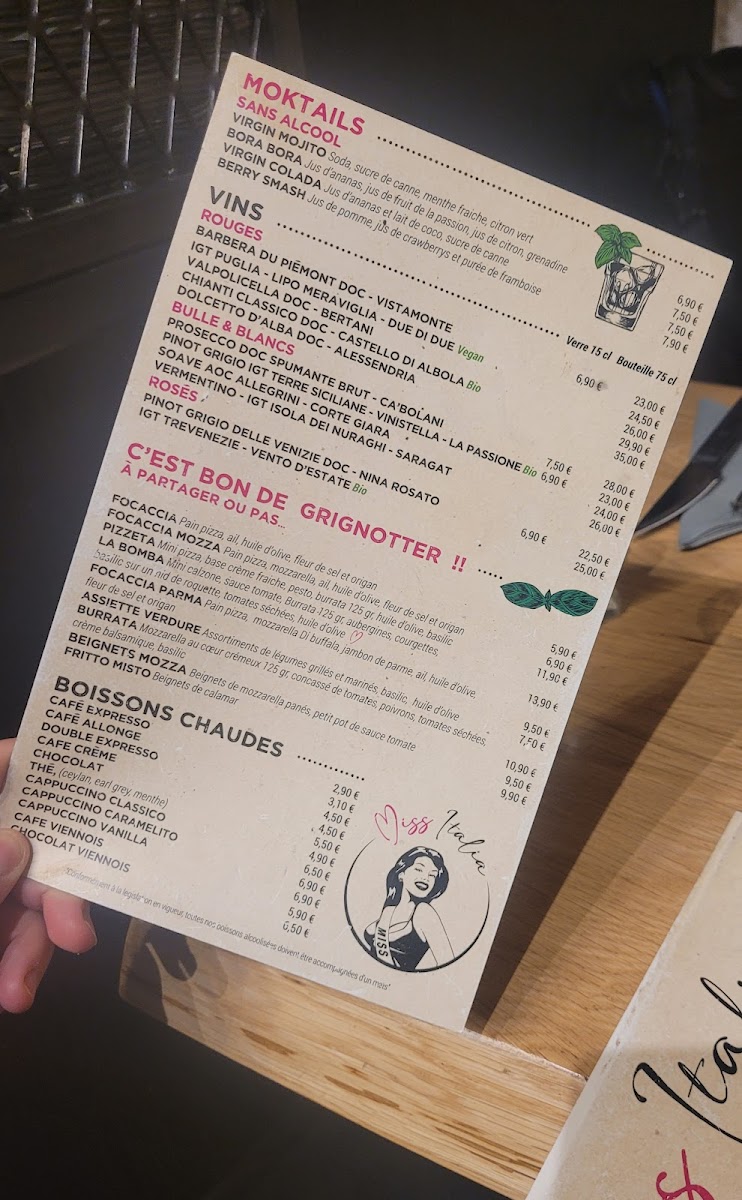 MOKTAILS
SANS ALCOOL
VIRGIN MOJITO Soda, sucre de canne, menthe fraiche, citron vert 6,90 €
BORA BORA Jus d'ananas, jus de fruit de la passion, jus de citron, grenadine 7,50 €
VIRGIN COLADA Jus d'ananas et lait de coco, sucre de canne 7,50 €
BERRY SMASH Jus de pomme, jus de crawberrys et purée de framboise 7,90 €
VINS Verre 15 cl Bouteille 75 cl
ROUGES
BARBERA DU PIÉMONT DOC - VISTAMONTE 6,90 € 23,00 €
IGT PUGLIA - LIPO MERAVIGLIA - DUE DI DUE Vegan 24,50 €
VALPOLICELLA DOC - BERTANI 26,00 €
CHIANTI CLASSICO DOC - CASTELLO DI ALBOLA Bio 29,90 €
DOLCETTO D'ALBA DOC - ALESSENDRIA 35,00 €
BULLE & BLANCS
PROSECCO DOC SPUMANTE BRUT - CA'BOLANI 7,50 € 28,00 €
PINOT GRIGIO IGT TERRE SICILIANE - VINISTELLA - LA PASSIONE Bio 6,90 € 23,00 €
SOAVE AOC ALLEGRINI - CORTE GIARA 24,00 €
VERMENTINO - IGT ISOLA DEI NURAGHI - SARAGAT 26,00 €
ROSÉS
PINOT GRIGIO DELLE VENIZIE DOC - NINA ROSATO 6,90 € 22,50 €
IGT TREVENEZIE - VENTO D'ESTATE Bio 25,00 €
C'EST BON DE GRIGNOTTER !!
À PARTAGER OU PAS...
FOCACCIA Pain pizza, ail, huile d'olive, fleur de sel et origan 5,90 €
FOCACCIA MOZZA Pain pizza, mozzarella, ail, huile d'olive, fleur de sel et origan 6,90 €
PIZZETA Mini pizza, base crème fraiche, pesto, burrata 125 gr, huile d'olive, basilic 11,90 €
LA BOMBA Mini calzone, sauce tomate, Burrata 125 gr, aubergines, courgettes,
basilic sur un nid de roquette, tomates séchées, huile d'olive 13,90 €
FOCACCIA PARMA Pain pizza, mozzarella Di buffala, jambon de parme, ail, huile d'olive,
fleur de sel et origan 9,50 €
ASSIETTE VERDURE Assortiments de légumes grillés et marinés, basilic, huile d'olive 7,50 €
BURRATA Mozzarella au cœur crémeux 125 gr, concassé de tomates, poivrons, tomates séchées,
crème balsamique, basilic 10,90 €
BEIGNETS MOZZA Beignets de mozzarella panés, petit pot de sauce tomate 9,50 €
FRITTO MISTO Beignets de calamar 9,90 €
BOISSONS CHAUDES
CAFÉ EXPRESSO 2,90 €
CAFÉ ALLONGE 3,10 €
DOUBLE EXPRESSO 4,50 €
CAFE CRÈME 4,50 €
CHOCOLAT 5,50 €
THÉ, (ceylan, earl grey, menthe) 4,90 €
CAPPUCCINO CLASSICO 6,50 €
CAPPUCCINO CARAMELITO 6,90 €
CAPPUCCINO VANILLA 6,90 €
CAFE VIENNOIS 5,90 €
CHOCOLAT VIENNOIS 6,50 €
Miss Italia
MISS
"Conformément à la législation en vigueur, toutes nos boissons alcoolisées doivent être accompagnées d'un mets"